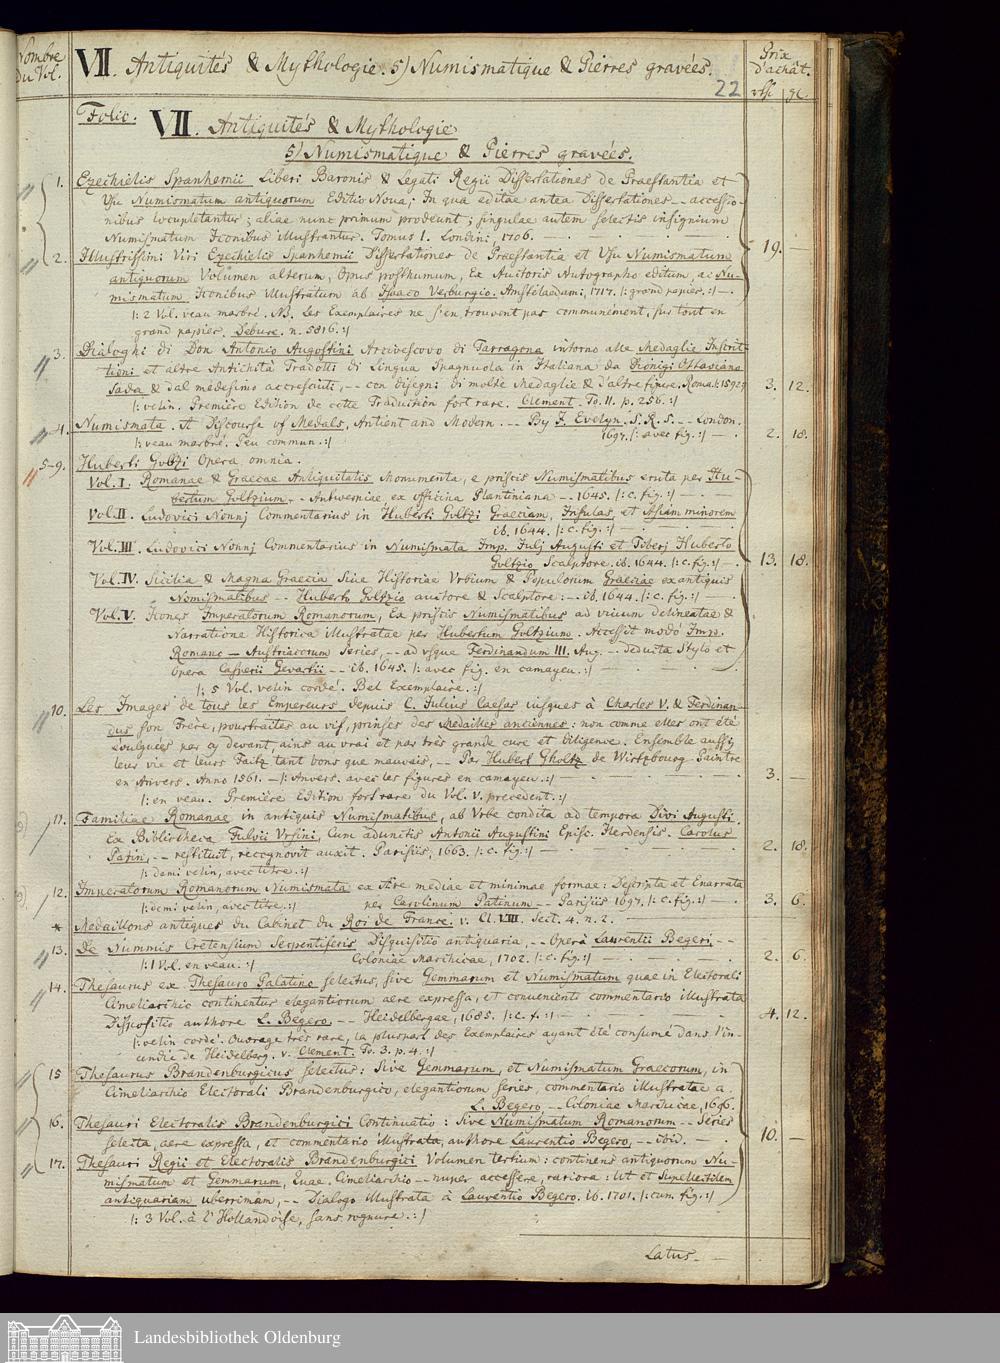 Nombre du Vol.
VII. Antiquités & Mythologie. 5) Numismatique & Pierres gravées.
Prix d'achat.
22
Folio.
VII. Antiquités & Mythologie
5) Numismatique & Pierres gravées.
1. Ezechielis Spanhemii Liberi Baronis & Legati Regii Dissertationes de Praestantia et
Usu Numismatum antiquorum Editio Nova; In qua editae antea Dissertationes -- accessio-
nibus locupletantur; aliae nunc primum prodeunt; singulae autem selectis insignium
Numismatum Iconibus illustrantur. Tomus I. Londini, 1706. — 19. —
2. Illustrissimi Viri Ezechielis Spanhemii Dissertationes de Praestantia et Usu Numismatum
antiquorum Volumen alterum, Opus posthumum, Ex Auctoris Autographo editum, ac Nu-
mismatum Iconibus illustratum ab Isaaco Verburgio. Amstelaedami, 1717. /: grand papier. :/ —
/: 2 Vol. veau marbré. NB. Les Exemplaires ne s'en trouvent pas communement, sur tout en
grand papier. Debure. n. 5816. :/
3. Dialoghi di Don Antonio Augostini Arcivescovo di Tarragona intorno alle Medaglie Inscrit-
tioni et altre Antichita Tradotti di Lingua Spagnuola in Italiana da Dionigi Ottaviano
Sada & dal medesimo accresciuti, -- con disegni di molte Medaglie & d'altre figure. Roma. /: 1592 :/ 3. 12.
/: velin. Première Edition de cette Traduction fort rare. Clement. To. II. p. 256. :/
4. Numismata. A Discourse of Medals, Antient and Modern. -- By J. Evelyn. S. R. S. -- London.
1697. /: avec fig. :/ — 2. 18.
/: veau marbré. Peu commun. :/
5-9. Huberti Goltzi Opera omnia.
Vol. I. Romanae & Graecae Antiquitatis Monumenta, e priscis Numismatibus eruta per Hu-
bertum Goltzium. -- Antverpiae ex officina Plantiniana -- 1645. /: c. fig. :/ —
Vol. II. Ludovici Nonnj Commentarius in Huberti Goltzi Graeciam, Insulas, et Asiam minorem
ib. 1644. /: c. fig. :/ —
Vol. III. Ludovici Nonnj Commentarius in Numismata Imp. Julj Augusti et Tiberj Huberto
Goltzio Scalptore. ib. 1644. /: c. fig. :/ — 13. 18.
Vol. IV. Sicilia & Magna Graecia Sive Historiae Urbium & Populorum Graeciae ex antiquis
Nomismatibus -- Huberto Goltzio auctore & Scalptore: -- ib. 1644. /: c. fig. :/ —
Vol. V. Icones Imperatorum Romanorum, Ex priscis Numismatibus ad vivum delineatae &
Narratione Historica illustratae per Hubertum Goltzium. Accessit modo Imp.
Romano - Austriacorum Series, -- ad usque Ferdinandum III. Aug. -- deducta Stylo et
Opera Casperii Gevartii -- ib. 1645. /: avec fig. en camayeu. :/ —
/: 5 Vol. velin cordé. Bel Exemplaire. :/
10. Les Images de tous les Empereurs depuis C. Iulius Caesar iusques à Charles V. & Ferdinan-
dus son Frère, pourtraites au vif, prinses des Medailles anciennes: non comme elles ont été
divulguées par cy devant, ains au vrai et par très grande cure et diligence. Ensemble aussi
leur vie et leurs Faitz tant bons que mauvais, -- Par Hubert Gholtz de Wirtzbourg Paintre
en Anvers. Anno 1561. — /: Anvers. avec les figures en camayeu. :/ 3. —
/: en veau. Première Edition fort rare du Vol. V. precedent. :/
11. Familiae Romanae in antiquis Numismatibus, ab Urbe condita ad tempora Divi Augusti.
Ex Bibliotheca Fulvii Ursini, Cum adunctis Antonii Augustini Episc. Ilerdensis. Carolus
Patin, -- restituit, recognovit auxit. Parisiis, 1663. /: c. fig. :/ — 2. 18.
/: demi velin, avec titre. :/
12. Imperatorum Romanorum Numismata ex Aere mediae et minimae formae: Descripta et Enarrata
per Carolinum Patinum -- Parisiis 1697. /: c. fig. :/ — 3. 6.
/: demi velin, avec titre. :/
* Medaillons antiques du Cabinet du Roi de France. v. Cl. VIII. Sect. 4. n. 2. —
13. De Nummis Cretensium Serpentiferis Disquisitio antiquaria, -- Operâ Laurentii Begeri, --
Coloniae Marchicae, 1702. /: c. fig. :/ — 2. 6.
/: 1 Vol. en veau. :/
14. Thesaurus ex Thesauro Palatino selectus, sive Gemmarum et Numismatum quae in Electorali
Cimeliarchio continentur elegantiorum aere expressa, et convenienti commentario illustrata
Dispositio authore L. Begero. -- Heidelbergae, 1685. /: c. f. :/ — 4. 12.
/: velin cordé. Ouvrage très rare, la pluspart des Exemplaires ayant été consumé dans l'in-
cendie de Heidelberg. v. Clement. To. 3. p. 4. :/
15 Thesaurus Brandenburgicus selectus: Sive Gemmarum, et Numismatum Graecorum, in
Cimeliarchio Electorali Brandenburgico, elegantiorum series, commentario illustratae a
L. Begero -- Coloniae Marchicae, 1696.
16. Thesauri Electoralis Brandenburgici Continuatio: Sive Numismatum Romanorum -- Series
selecta, aere expressa, et commentario illustrata, authore Laurentio Begero, -- ibid. — 10. —
17. Thesauri Regii et Electoralis Brandenburgici Volumen tertium: continens antiquorum Nu-
mismatum et Gemmarum, Quae Cimeliarchio -- nuper accessere, rariora: Ut et Supellectilem
antiquariam uberrimam, -- Dialogo illustrata à Laurentio Begero. ib. 1701. /: cum fig. :/
/: 3 Vol. à l'Hollandoise, sans rognure. :/
Latus —
Landesbibliothek Oldenburg